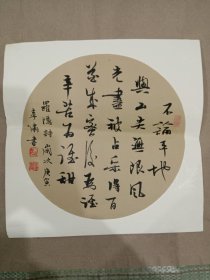 不論平地
與山尖無限風
光盡被占采得百
花成蜜後為誰
辛苦為誰甜
羅隱詩歲次庚寅
書